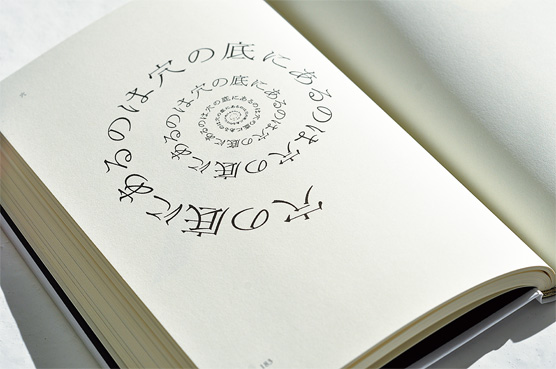 穴の底にあるのは穴の底にあるのは穴の底にあるのは穴の底にあるのは穴の底にあるのは穴の底にあるのは
183